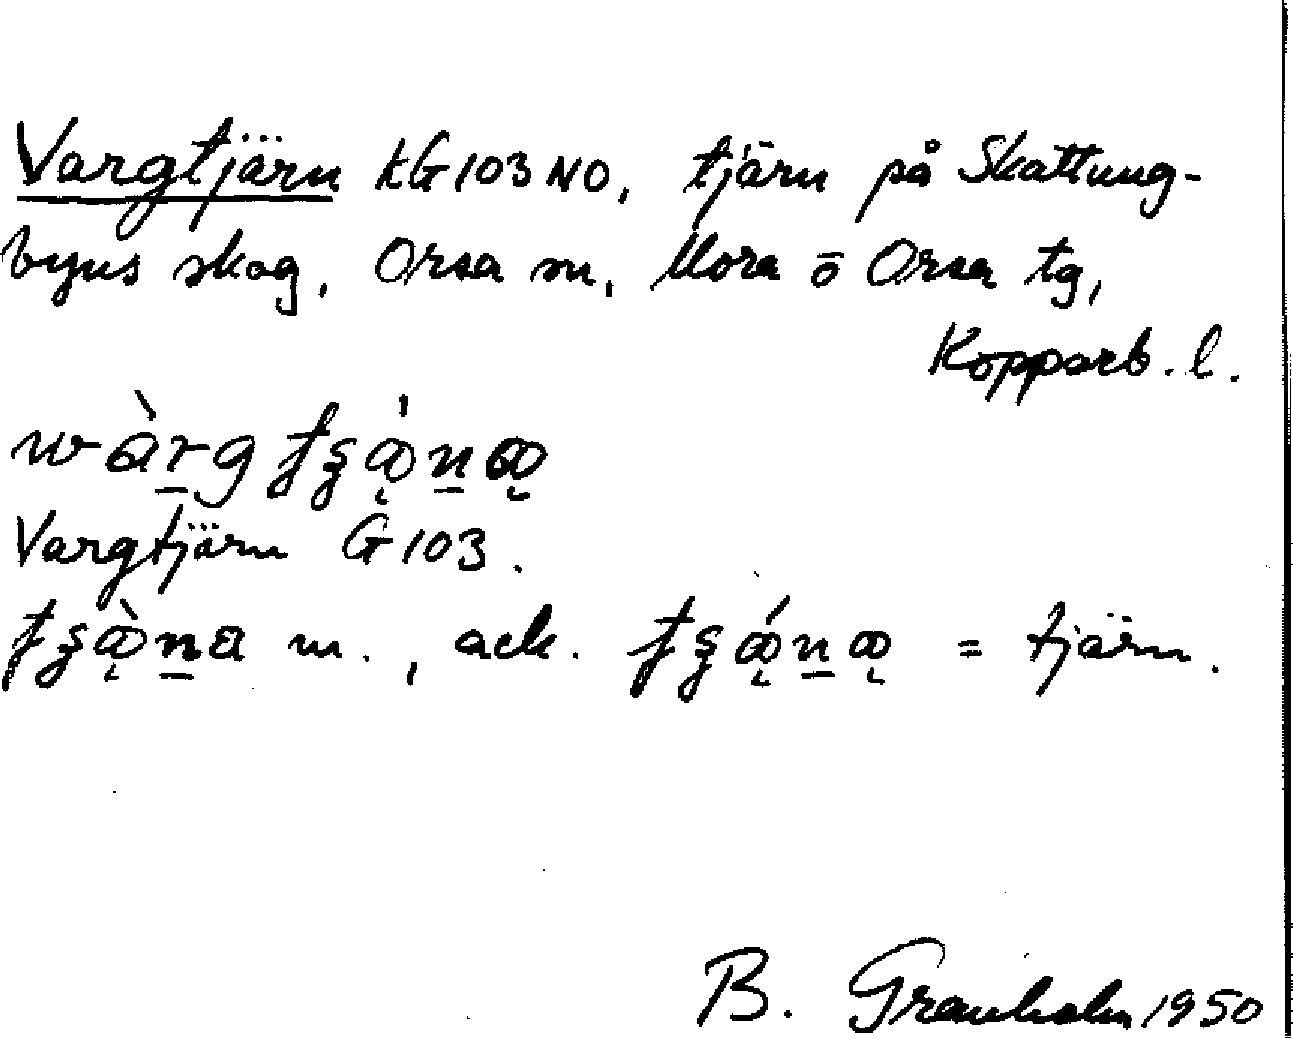 Vargtjärn KG103NO, tjärn på Skattung-
byns skog, Orsa sn, Mora o Orsa tg,
Kopparb. l.
Vargtjärn G103.
m., ack. = tjärn.
B. Granholm 1950